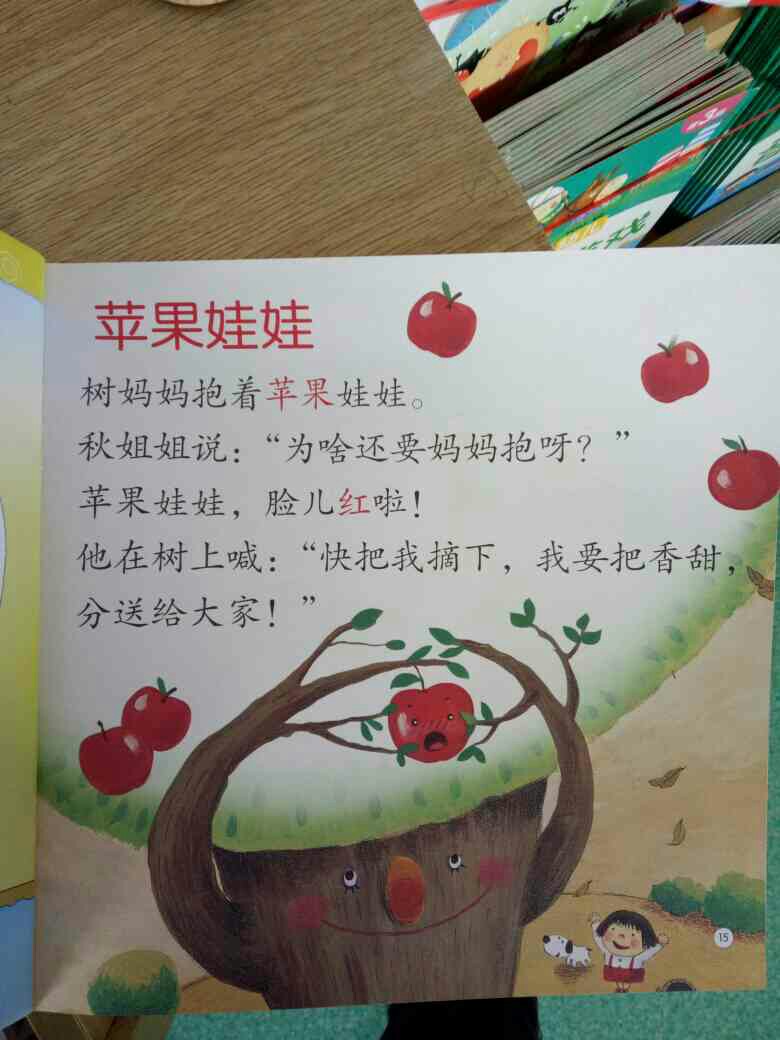 苹果娃娃
树妈妈抱着苹果娃娃。
秋姐姐说：“为啥还要妈妈抱呀？”
苹果娃娃，脸儿红啦！
他在树上喊：“快把我摘下，我要把香甜，
分送给大家！”
15